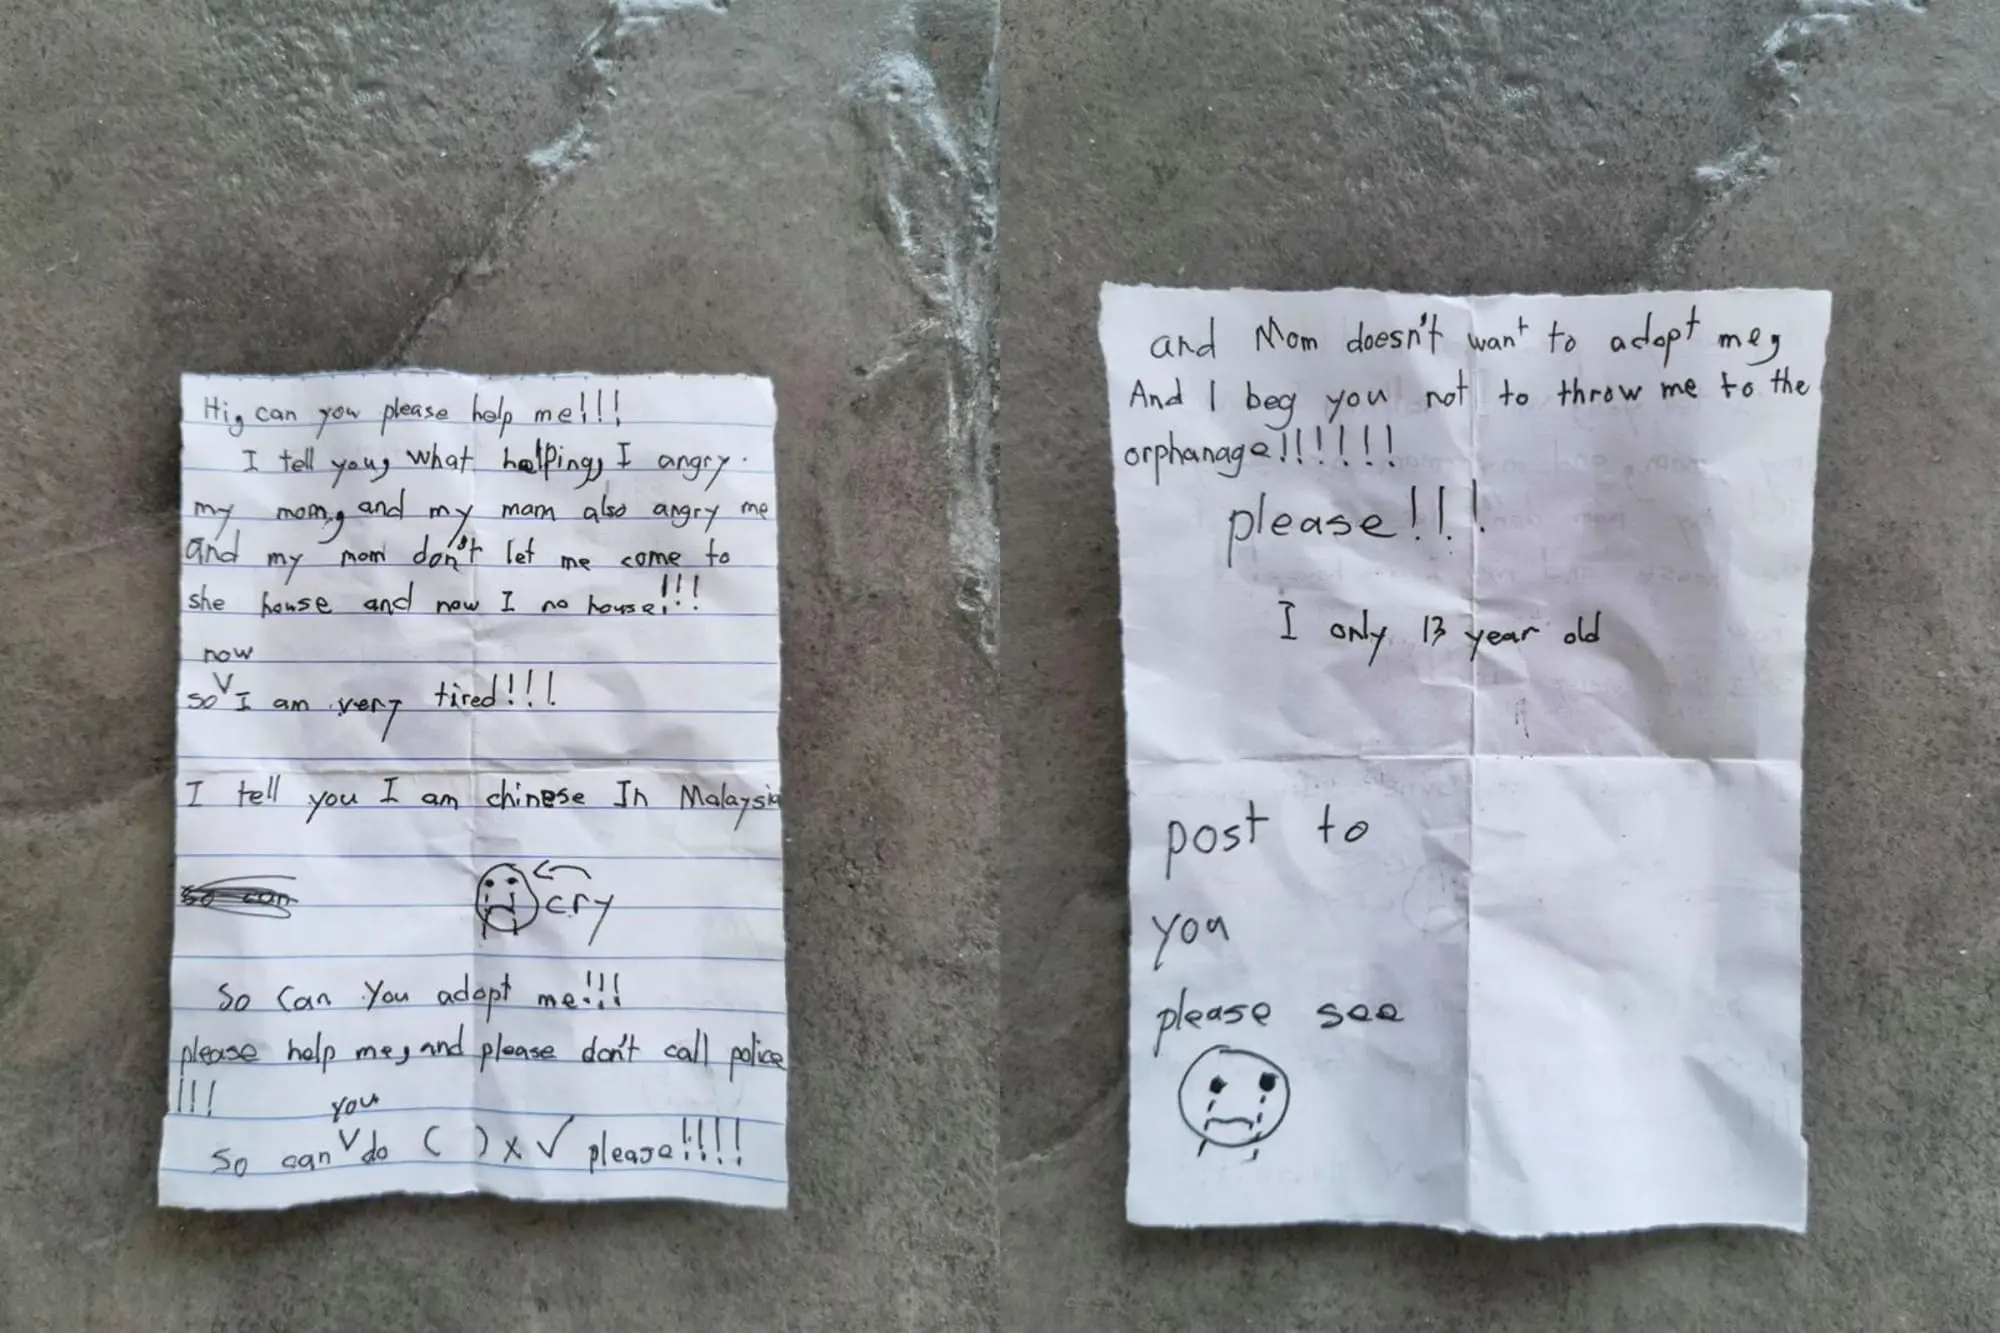 Hi, can you please help me!!!
I tell you, what helping, I angry.
my mom, and my mam also angry me
and my mom don't let me come to
she house and now I no house!!!
now
so V I am very tired!!!
I tell you I am chinese In Malaysia
so can
cry
so can you adopt me!!!
please help me, and please don't call police
!!!
you
So can V do ( ) x ✓ please!!!!
and Mom doesn't want to adopt me,
And I beg you not to throw me to the
orphanage!!!!!!
please!!!
I only 13 year old
post to
you
please see